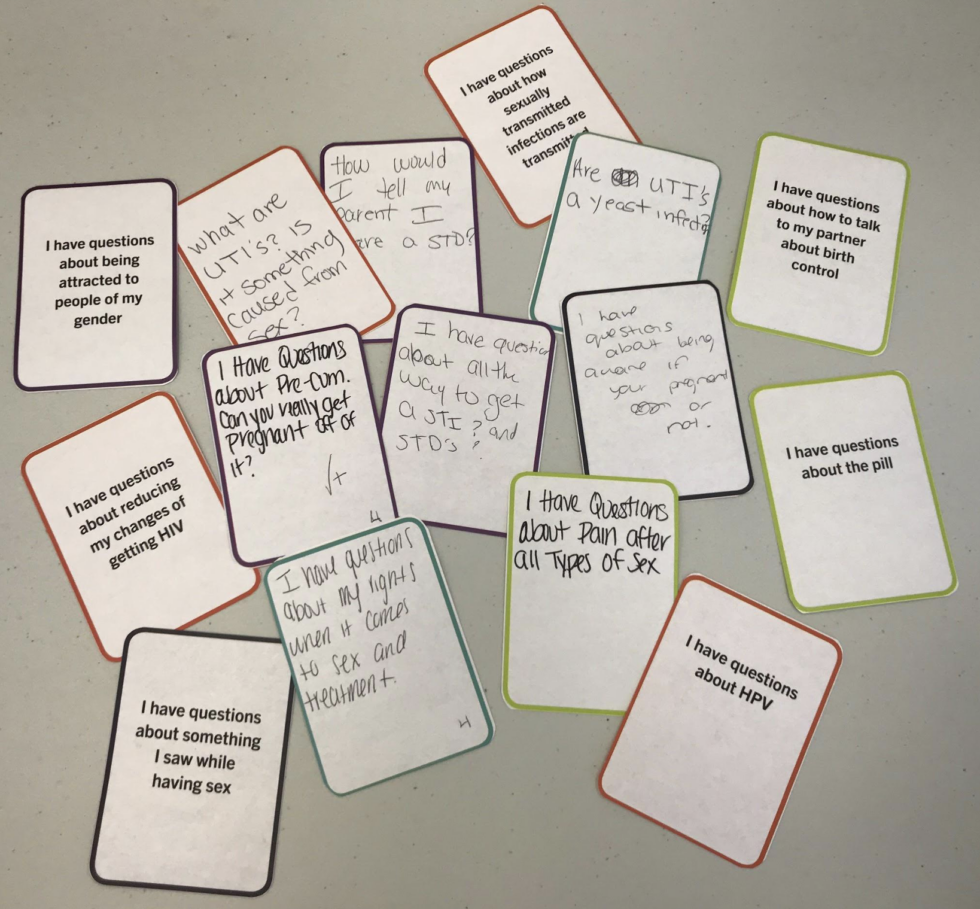 I have questions
about how
sexually
transmitted
infections are
How would
I tell my
parent I
a STD?
Are UTI's
a yeast infect?
I have questions
about how to talk
to my partner
about birth
control
I have questions
about being
attracted to
people of my
gender
what are
UTI's? is
it something
caused from
sex?
I have
questions
about being
aware if
your pregnant
or
not.
I have question
about all the
way to get
a STI? and
STD's?
I Have Questions
about Pre-Cum.
Can you really get
pregnant off of
it?
√+
4
I have questions
about the pill
I have questions
about reducing
my changes of
getting HIV
I Have Questions
about Pain after
all Types of Sex
I have questions
about my rights
when it comes
to sex and
treatment.
4
I have questions
about HPV
I have questions
about something
I saw while
having sex